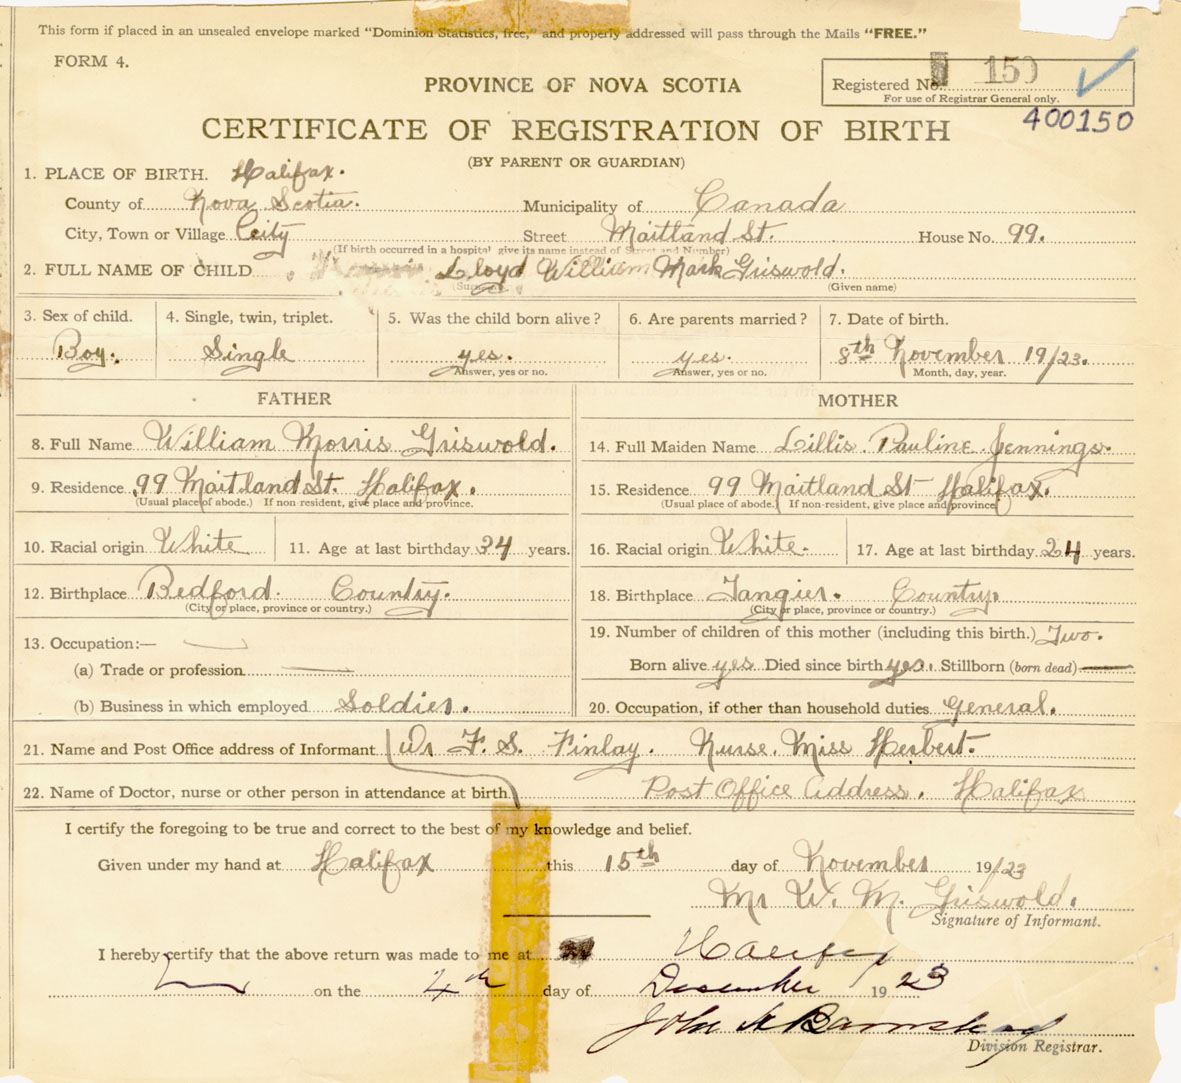 This form if placed in an unsealed envelope marked "Dominion Statistics, free," and properly addressed will pass through the Mails "FREE."
FORM 4.
Registered No. 150
For use of Registrar General only.
400150
PROVINCE OF NOVA SCOTIA
CERTIFICATE OF REGISTRATION OF BIRTH
(BY PARENT OR GUARDIAN)
1. PLACE OF BIRTH. Halifax.
County of Nova Scotia. Municipality of Canada
City, Town or Village City Street Maitland St. House No. 99.
(If birth occurred in a hospital give its name instead of Street and Number)
2. FULL NAME OF CHILD Lloyd William Mark Griswold.
(Given name)
3. Sex of child. 4. Single, twin, triplet. 5. Was the child born alive? 6. Are parents married? 7. Date of birth.
Boy. Single yes. yes. 8th November 19/23.
Answer, yes or no. Answer, yes or no. Month, day, year.
FATHER MOTHER
8. Full Name William Morris Griswold. 14. Full Maiden Name Lillis. Pauline Jennings.
9. Residence 99 Maitland St. Halifax. 15. Residence 99 Maitland St Halifax.
(Usual place of abode.) If non-resident, give place and province. (Usual place of abode.) If non-resident, give place and province
10. Racial origin White 11. Age at last birthday 34 years. 16. Racial origin White. 17. Age at last birthday 24 years.
12. Birthplace Bedford. Country. 18. Birthplace Tangier. Country.
(City or place, province or country.) (City or place, province or country.)
13. Occupation:— 19. Number of children of this mother (including this birth.) Two.
(a) Trade or profession Born alive yes Died since birth yes. Stillborn (born dead) —
(b) Business in which employed Soldier. 20. Occupation, if other than household duties General.
21. Name and Post Office address of Informant Dr F. S. Finlay. Nurse. Miss Herbert.
22. Name of Doctor, nurse or other person in attendance at birth Post Office Address. Halifax
I certify the foregoing to be true and correct to the best of my knowledge and belief.
Given under my hand at Halifax this 15th day of November 19/23
Mr W. M. Griswold.
Signature of Informant.
I hereby certify that the above return was made to me at Halifax
on the 4th day of December 1923
John A Barnstead
Division Registrar.